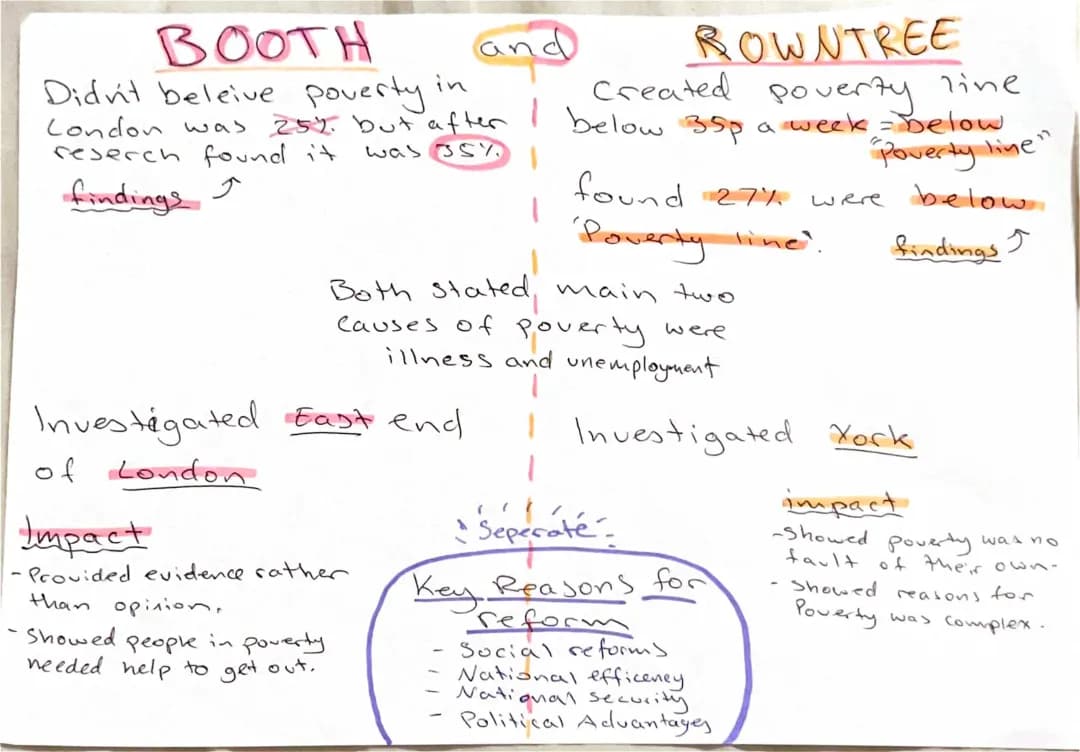 BOOTH
Didn't beleive poverty in
London was 25%. but after
reserch found it was 35%.
findings
and
ROWNTREE
Created poverty line
below 35p a week = below
"Poverty line"
found 27% were below
'Poverty line'.
findings
Both stated, main two
causes of poverty were
illness and unemployment
Investigated East end
of London
Impact
- Provided evidence rather
than opinion.
- Showed people in poverty
needed help to get out.
Investigated York
impact
- Showed poverty was no
fault of their own.
- Showed reasons for
Poverty was complex.
Seperate
Key Reasons for
reform
- Social reforms
- National efficeney
- National security
- Political Advantages